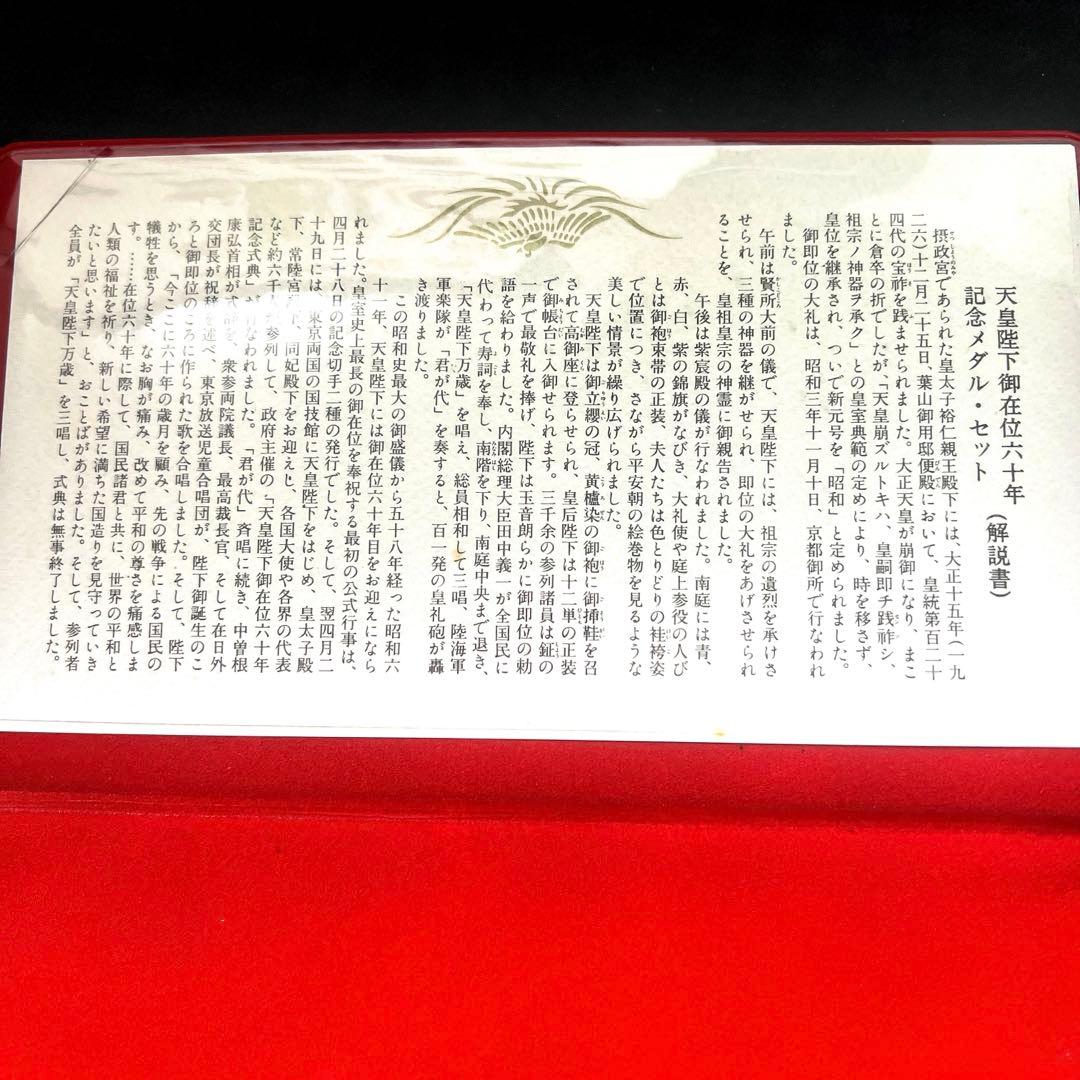 天皇陛下御在位六十年
記念メダル・セット（解説書）
摂政宮であられた皇太子裕仁親王殿下には、大正十五年（一九
二六）十二月二十五日、葉山御用邸便殿において、皇統第百二十
四代の宝祚を践ませられました。大正天皇が崩御になり、まこ
とに倉卒の折でしたが「天皇崩ズルトキハ、皇嗣即チ践祚シ、
祖宗ノ神器ヲ承ク」との皇室典範の定めにより、時を移さず、
皇位を継承され、ついで新元号を「昭和」と定められました。
御即位の大礼は、昭和三年十一月十日、京都御所で行なわれ
ました。
午前は賢所大前の儀で、天皇陛下には、祖宗の遺烈を承けさ
せられ、三種の神器を継がせられ、即位の大礼をあげさせられ
ることを、皇祖皇宗の神霊に御親告されました。
午後は紫宸殿の儀が行なわれました。南庭には青、
赤、白、紫の錦旗がなびき、大礼使や庭上参役の人び
とは御袍束帯の正装、夫人たちは色とりどりの袿袴姿
で位置につき、さながら平安朝の絵巻物を見るような
美しい情景が繰り広げられました。
天皇陛下は御立纓の冠、黄櫨染の御袍に御挿鞋を召
されて高御座に登らせられ、皇后陛下は十二単の正装
で御帳台に入御せられます。三千余の参列諸員は鉦の
一声で最敬礼を捧げ、陛下は玉音朗らかに御即位の勅
語を給わりました。内閣総理大臣田中義一が全国民に
代わって寿詞を奉し、南階を下り、南庭中央まで退き、
「天皇陛下万歳」を唱え、総員相和して三唱、陸海軍
軍楽隊が「君が代」を奏すると、百一発の皇礼砲が轟
き渡りました。
この昭和史最大の御盛儀から五十八年経った昭和六
十一年、天皇陛下には御在位六十年目をお迎えになら
れました。皇室史上最長の御在位を奉祝する最初の公式行事は、
四月二十八日の記念切手二種の発行でした。そして、翌四月二
十九日には、東京両国の国技館に天皇陛下をはじめ、皇太子殿
下、常陸宮殿下、同妃殿下をお迎えし、各国大使や各界の代表
など約六千人が参列して、政府主催の「天皇陛下御在位六十年
記念式典」が行なわれました。「君が代」斉唱に続き、中曽根
康弘首相が式辞を、衆参両院議長、最高裁長官、そして在日外
交団長が祝辞を述べ、東京放送児童合唱団が、陛下御誕生のこ
ろと御即位のころに作られた歌を合唱しました。そして、陛下
から、「今ここに六十年の歳月を顧み、先の戦争による国民の
犠牲を思うとき、なお胸が痛み、改めて平和の尊さを痛感しま
す。……在位六十年に際して、国民諸君と共に、世界の平和と
人類の福祉を祈り、新しい希望に満ちた国造りを見守っていき
たいと思います」と、おことばがありました。そして、参列者
全員が「天皇陛下万歳」を三唱し、式典は無事終了しました。